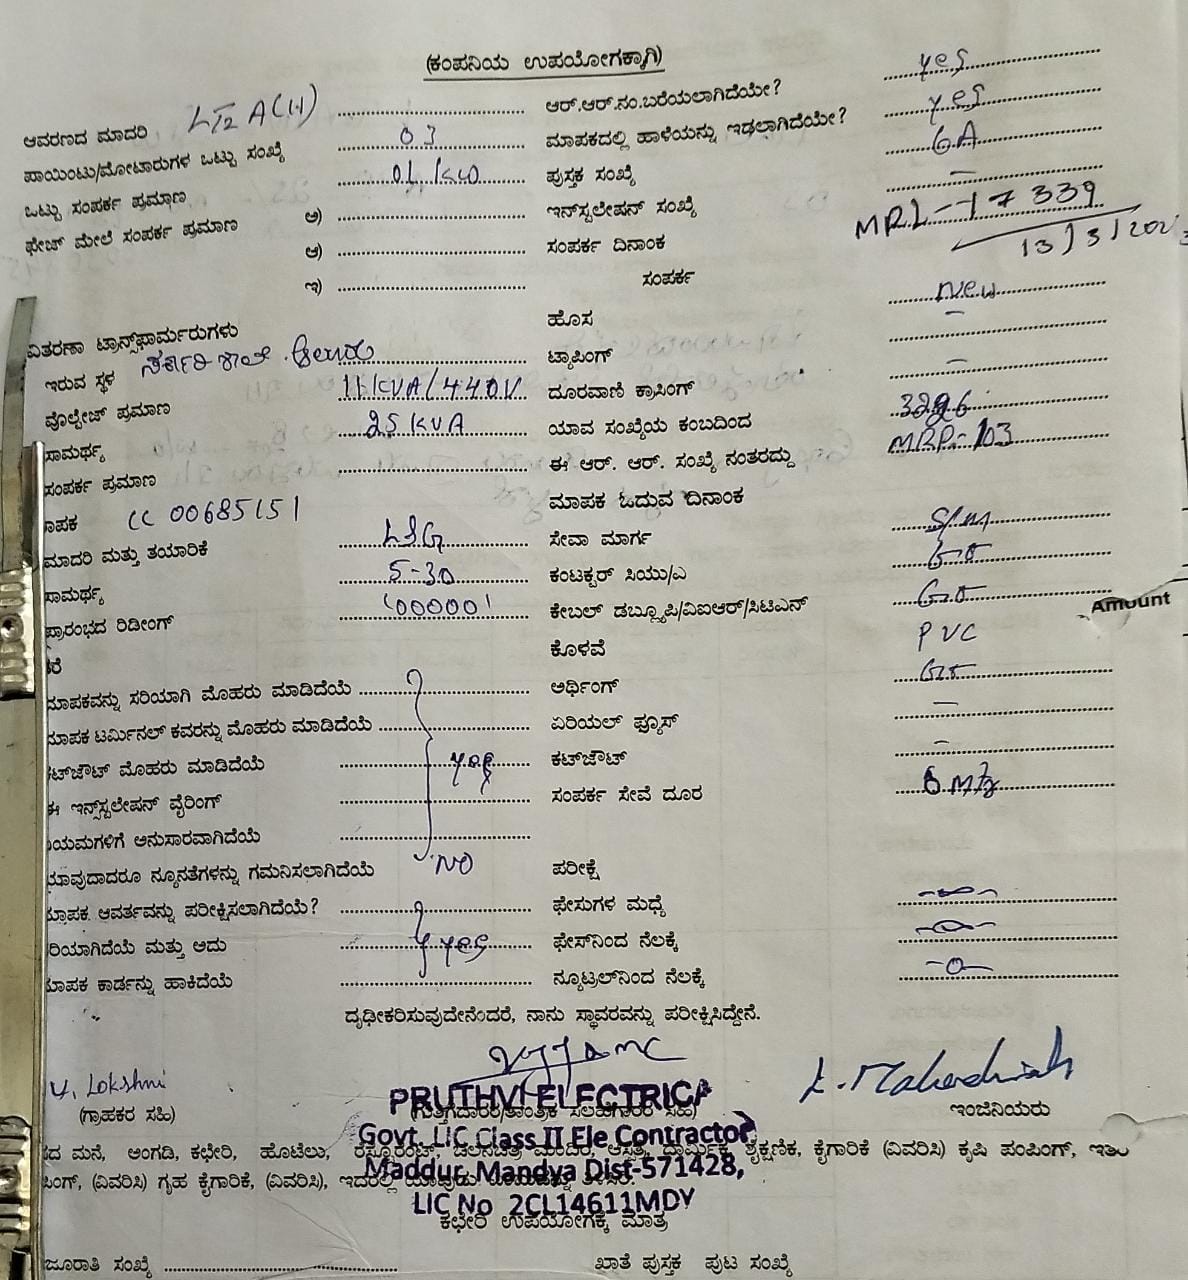 (ಕಂಪನಿಯ ಉಪಯೋಗಕ್ಕಾಗಿ)
ಆವರಣದ ಮಾದರಿ LT2 A(H) ಆರ್.ಆರ್.ನಂ.ಬರೆಯಲಾಗಿದೆಯೇ? yes
ಪಾಯಿಂಟು/ಮೋಟಾರುಗಳ ಒಟ್ಟು ಸಂಖ್ಯೆ 03 ಮಾಪಕದಲ್ಲಿ ಹಾಳೆಯನ್ನು ಇಡಲಾಗಿದೆಯೇ? yes
ಒಟ್ಟು ಸಂಪರ್ಕ ಪ್ರಮಾಣ 01 KW ಪುಸ್ತಕ ಸಂಖ್ಯೆ 6A
ಫೇಜ್ ಮೇಲೆ ಸಂಪರ್ಕ ಪ್ರಮಾಣ ಅ) ಇನ್‌ಸ್ಟಲೇಷನ್ ಸಂಖ್ಯೆ –
ಆ) ಸಂಪರ್ಕ ದಿನಾಂಕ MRL-17339
13/3/202
ಇ) ಸಂಪರ್ಕ
ವಿತರಣಾ ಟ್ರಾನ್ಸ್‌ಫಾರ್ಮರುಗಳು ಹೊಸ New
ಇರುವ ಸ್ಥಳ ಸರ್ಕಾರಿ ಶಾಲೆ ಟ್ಯಾಪಿಂಗ್ –
ವೊಲ್ಟೇಜ್ ಪ್ರಮಾಣ 11KVA/440V ದೂರವಾಣಿ ಕ್ರಾಸಿಂಗ್ –
ಸಾಮರ್ಥ್ಯ 25 KVA ಯಾವ ಸಂಖ್ಯೆಯ ಕಂಬದಿಂದ
ಸಂಪರ್ಕ ಪ್ರಮಾಣ ಈ ಆರ್. ಆರ್. ಸಂಖ್ಯೆ ನಂತರದ್ದು MRP-103
ಾಪಕ CC 00685151 ಮಾಪಕ ಓದುವ ದಿನಾಂಕ
ಮಾದರಿ ಮತ್ತು ತಯಾರಿಕೆ L&G ಸೇವಾ ಮಾರ್ಗ
ಸಾಮರ್ಥ್ಯ 5-30 ಕಂಟಕ್ಟರ್ ಸಿಯು/ಎ
ಪ್ರಾರಂಭದ ರಿಡೀಂಗ್ '000001' ಕೇಬಲ್ ಡಬ್ಲ್ಯೂಪಿ/ವಿಐಆರ್/ಸಿಟಿಎನ್
Amount
ರೆ ಕೊಳವೆ PVC
ಮಾಪಕವನ್ನು ಸರಿಯಾಗಿ ಮೊಹರು ಮಾಡಿದೆಯೆ ಅರ್ಥಿಂಗ್
ಮಾಪಕ ಟರ್ಮಿನಲ್ ಕವರನ್ನು ಮೊಹರು ಮಾಡಿದೆಯೆ ಏರಿಯಲ್ ಫ್ಯೂಸ್ –
ಕಟ್‌ಔಟ್ ಮೊಹರು ಮಾಡಿದೆಯೆ yes ಕಟ್‌ಔಟ್ –
ಈ ಇನ್ಸ್‌ಸ್ಟಲೇಷನ್ ವೈರಿಂಗ್ ಸಂಪರ್ಕ ಸೇವೆ ದೂರ
ಯಮಗಳಿಗೆ ಅನುಸಾರವಾಗಿದೆಯೆ
ಯಾವುದಾದರೂ ನ್ಯೂನತೆಗಳನ್ನು ಗಮನಿಸಲಾಗಿದೆಯೆ NO ಪರೀಕ್ಷೆ
ಮಾಪಕ ಆವರ್ತವನ್ನು ಪರೀಕ್ಷಿಸಲಾಗಿದೆಯೆ? ಫೇಸುಗಳ ಮಧ್ಯೆ
ರಿಯಾಗಿದೆಯೆ ಮತ್ತು ಅದು yes ಫೇಸ್‌ನಿಂದ ನೆಲಕ್ಕೆ
ಮಾಪಕ ಕಾರ್ಡನ್ನು ಹಾಕಿದೆಯೆ ನ್ಯೂಟ್ರಲ್‌ನಿಂದ ನೆಲಕ್ಕೆ -0-
ದೃಢೀಕರಿಸುವುದೇನೆಂದರೆ, ನಾನು ಸ್ಥಾವರವನ್ನು ಪರೀಕ್ಷಿಸಿದ್ದೇನೆ.
Lokshmi
(ಗ್ರಾಹಕರ ಸಹಿ) (ಗುತ್ತಿಗೆದಾರರ/ತಾಂತ್ರಿಕ ಸಲಹಾಗಾರರ ಸಹಿ) ಇಂಜಿನಿಯರು
PRUTHVI ELECTRICA
Govt. LIC Class II Ele Contractor
Maddur, Mandya Dist-571428,
LIC No 2CL14611MDY
ದ ಮನೆ, ಅಂಗಡಿ, ಕಛೇರಿ, ಹೊಟೇಲು, ಶೈಕ್ಷಣಿಕ, ಕೈಗಾರಿಕೆ (ವಿವರಿಸಿ) ಕೃಷಿ ಪಂಪಿಂಗ್, ಇತರ
ಪಿಂಗ್, (ವಿವರಿಸಿ) ಗೃಹ ಕೈಗಾರಿಕೆ, (ವಿವರಿಸಿ), ಇದರಲ್ಲಿ
ಕಛೇರಿ ಉಪಯೋಗಕ್ಕೆ ಮಾತ್ರ
ಜೂರಾತಿ ಸಂಖ್ಯೆ ಖಾತೆ ಪುಸ್ತಕ ಪುಟ ಸಂಖ್ಯೆ